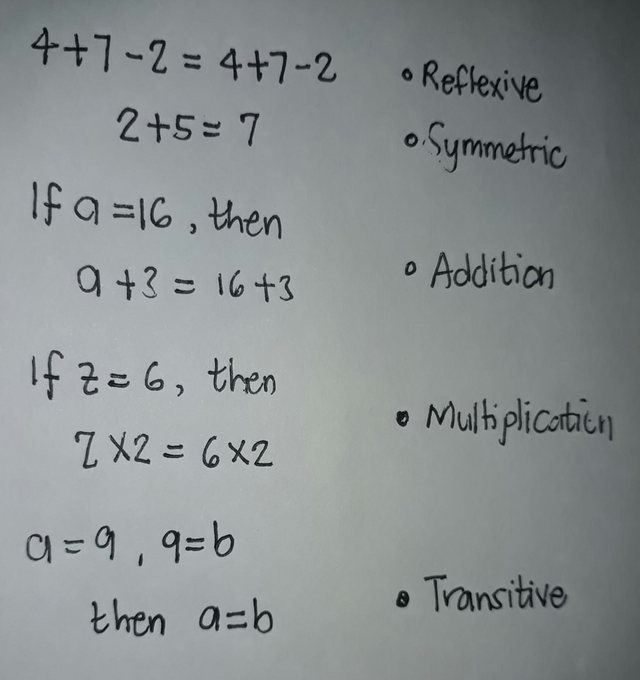 4+7-2 = 4+7-2 • Reflexive
2+5=7 • Symmetric
If a=16, then
a+3 = 16+3 • Addition
If z=6, then
z×2 = 6×2 • Multiplication
a=9, 9=b
then a=b • Transitive